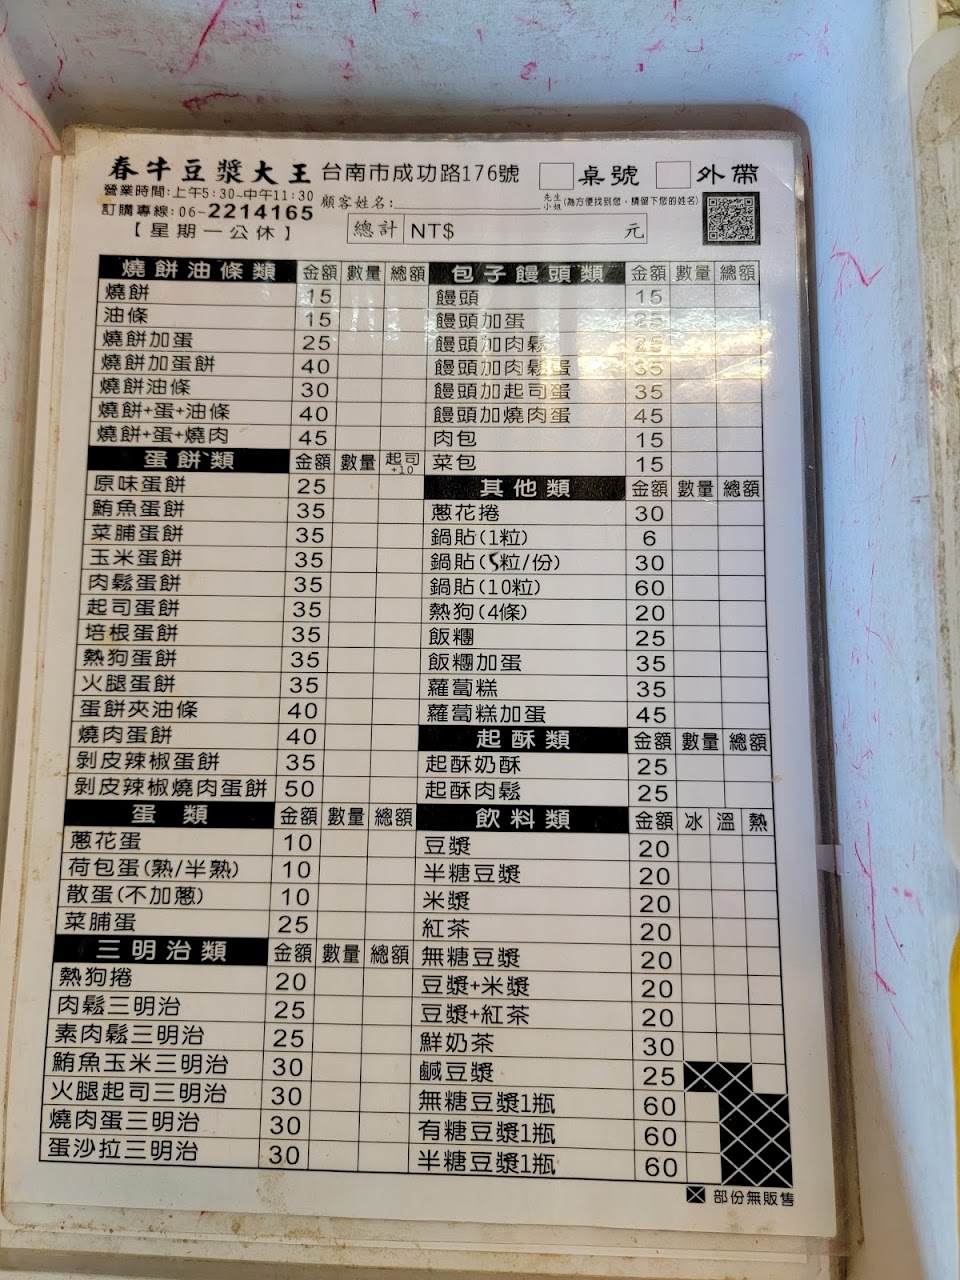 春牛豆漿大王 台南市成功路176號 桌號 外帶
營業時間:上午5:30~中午11:30
顧客姓名: 先生 小姐 (為方便找到您，請留下您的姓名)
訂購專線:06-2214165
【星期一公休】
總計 NT$ 元
燒餅油條類 金額 數量 總額
燒餅 15
油條 15
燒餅加蛋 25
燒餅加蛋餅 40
燒餅油條 30
燒餅+蛋+油條 40
燒餅+蛋+燒肉 45
蛋餅類 金額 數量 起司+10
原味蛋餅 25
鮪魚蛋餅 35
菜脯蛋餅 35
玉米蛋餅 35
肉鬆蛋餅 35
起司蛋餅 35
培根蛋餅 35
熱狗蛋餅 35
火腿蛋餅 35
蛋餅夾油條 40
燒肉蛋餅 40
剝皮辣椒蛋餅 35
剝皮辣椒燒肉蛋餅 50
蛋類 金額 數量 總額
蔥花蛋 10
荷包蛋(熟/半熟) 10
散蛋(不加蔥) 10
菜脯蛋 25
三明治類 金額 數量 總額
熱狗捲 20
肉鬆三明治 25
素肉鬆三明治 25
鮪魚玉米三明治 30
火腿起司三明治 30
燒肉蛋三明治 30
蛋沙拉三明治 30
包子饅頭類 金額 數量 總額
饅頭 15
饅頭加蛋 25
饅頭加肉鬆 25
饅頭加肉鬆蛋 35
饅頭加起司蛋 35
饅頭加燒肉蛋 45
肉包 15
菜包 15
其他類 金額 數量 總額
蔥花捲 30
鍋貼(1粒) 6
鍋貼(5粒/份) 30
鍋貼(10粒) 60
熱狗(4條) 20
飯糰 25
飯糰加蛋 35
蘿蔔糕 35
蘿蔔糕加蛋 45
起酥類 金額 數量 總額
起酥奶酥 25
起酥肉鬆 25
飲料類 金額 冰 溫 熱
豆漿 20
半糖豆漿 20
米漿 20
紅茶 20
無糖豆漿 20
豆漿+米漿 20
豆漿+紅茶 20
鮮奶茶 30
鹹豆漿 25
無糖豆漿1瓶 60
有糖豆漿1瓶 60
半糖豆漿1瓶 60
部份無販售